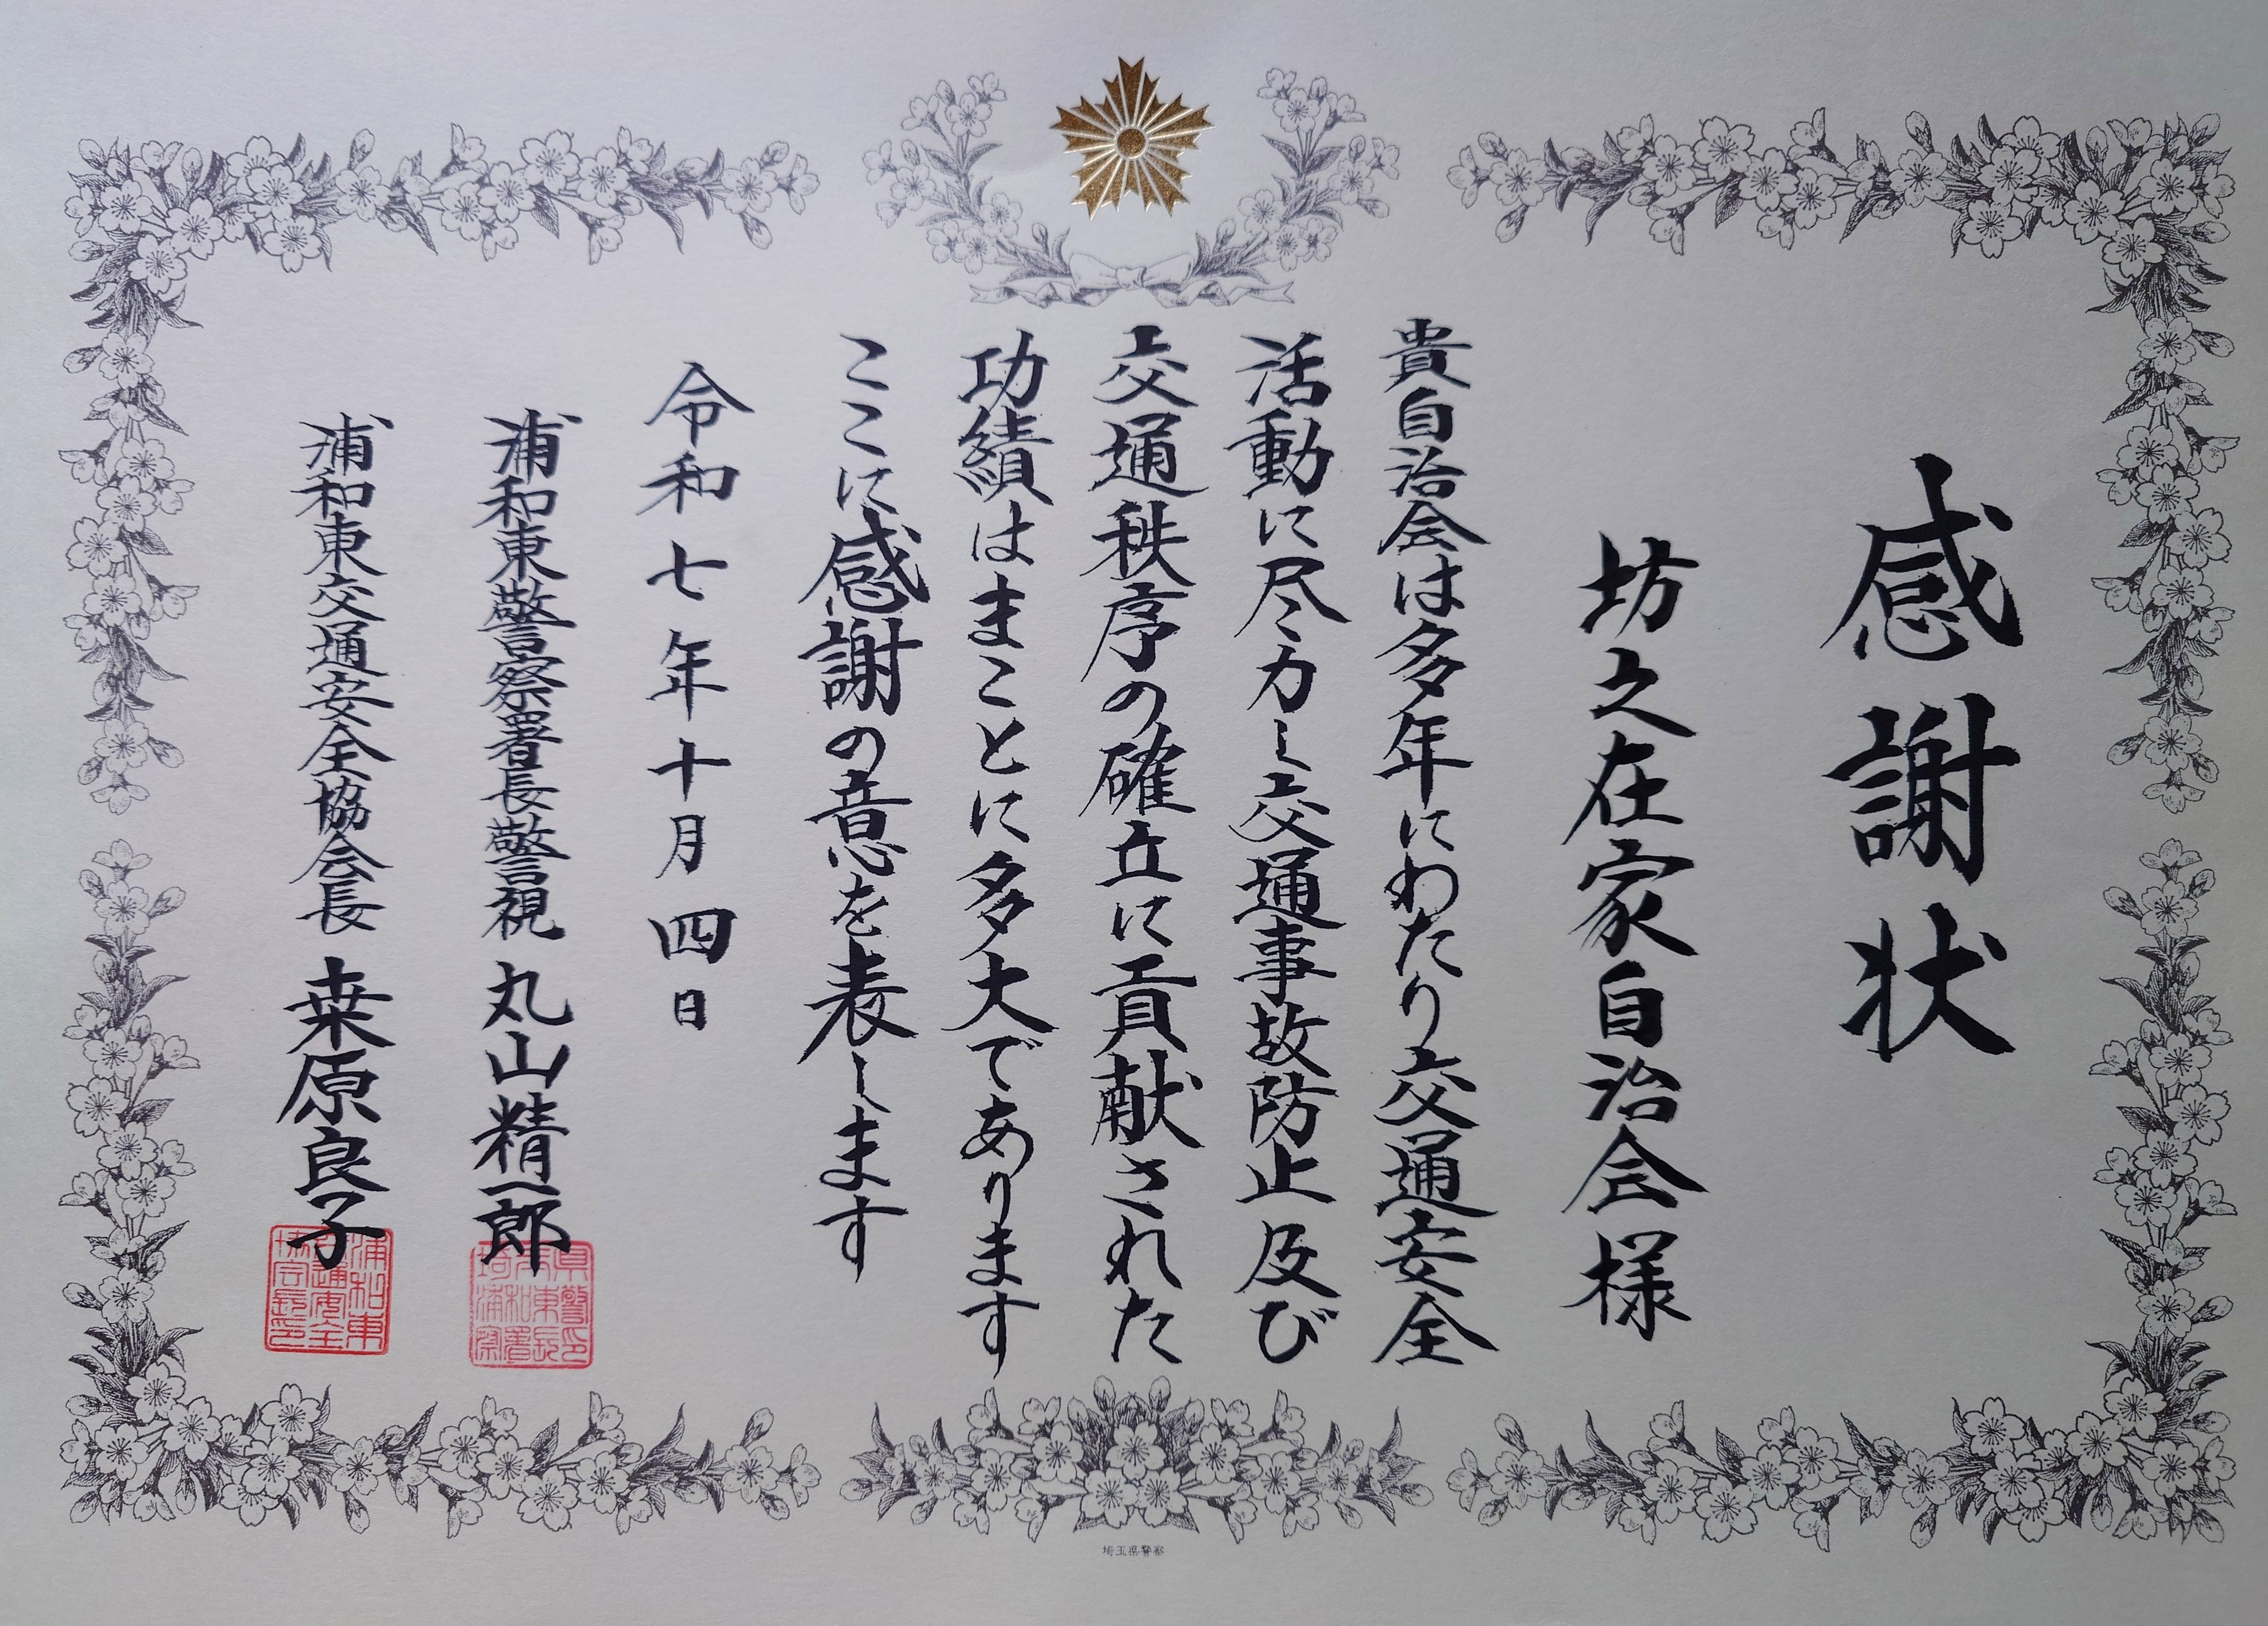 感謝状
坊之在家自治会様
貴自治会は多年にわたり交通安全
活動に尽力し交通事故防止及び
交通秩序の確立に貢献された
功績はまことに多大であります
ここに感謝の意を表します
令和七年十月四日
浦和東警察署長警視 丸山精一郎
浦和東交通安全協会長 桒原良子
埼玉県警察